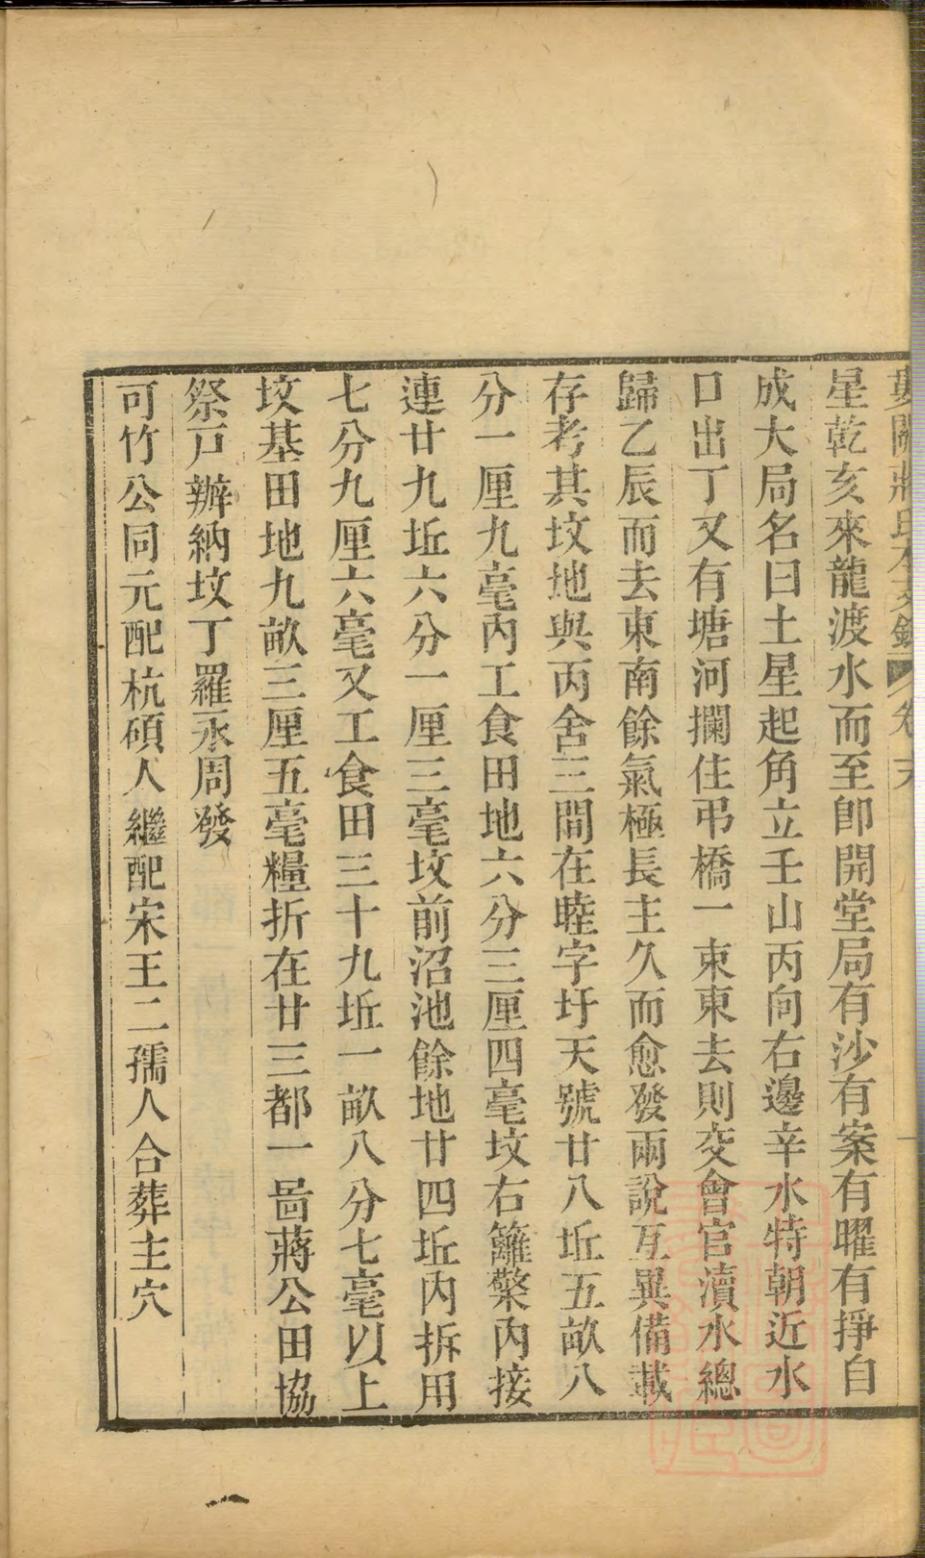 婁關蔣氏本支錄 卷末
星乾亥來龍渡水而至卽開堂局有沙有案有曜有掙自
成大局名曰土星起角立壬山丙向右邊辛水特朝近水
口出丁又有塘河攔住弔橋一束東去則交會官瀆水總
歸乙辰而去東南餘氣極長主久而愈發兩說互異備載
存考其墳地與丙舍三間在睦字圩天號廿八坵五畝八
分一厘九毫內工食田地六分三厘四毫墳右籬槳內接
連廿九坵六分一厘三毫墳前沼池餘地廿四坵內拆用
七分九厘六毫又工食田三十九坵一畝八分七毫以上
墳基田地九畝三厘五毫糧折在廿三都一啚蔣公田協
祭戸辦納墳丁羅永周發
可竹公同元配杭碩人繼配宋王二孺人合葬主穴